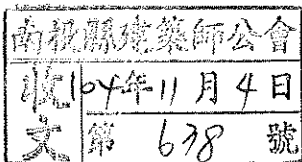 南投縣建築師公會
收文
104年11月4日
第638號